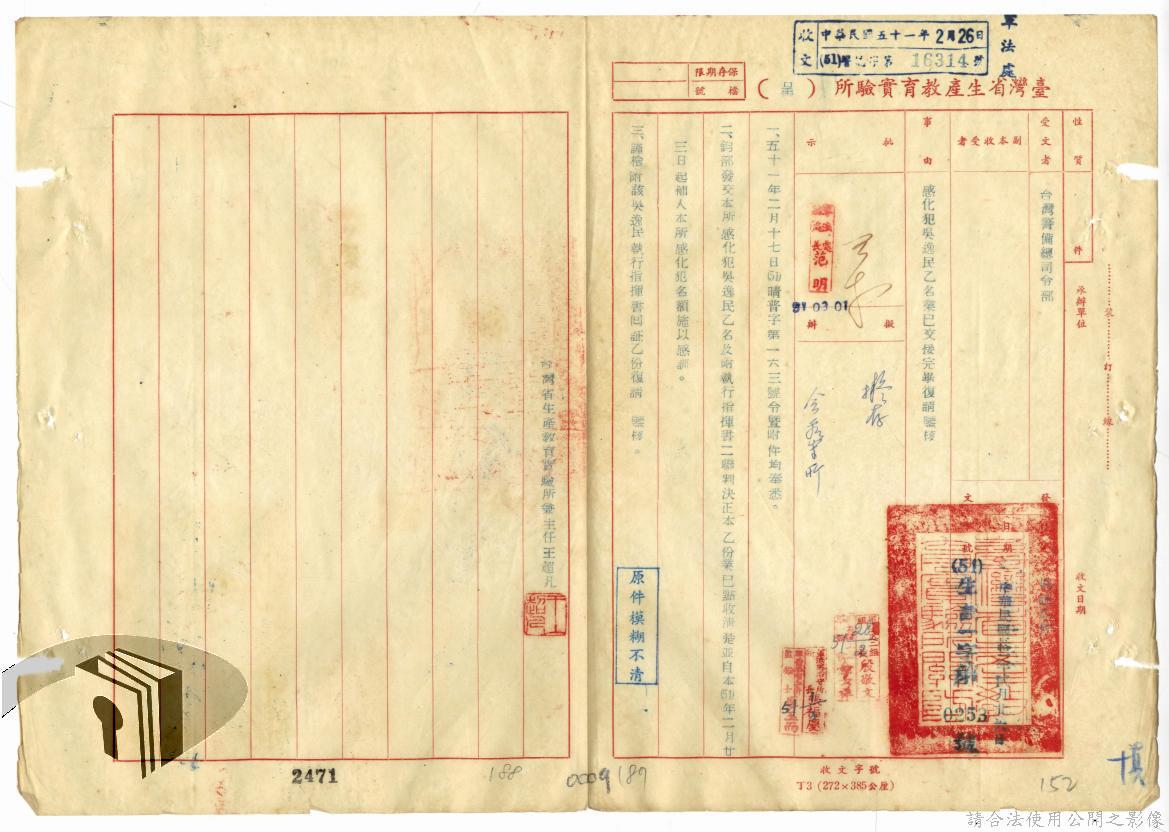 軍法處
收文 中華民國五十一年2月26日
(51)字第16314號
臺灣省生產教育實驗所(呈)
保存期限
檔號
性質
件
受文者
台灣警備總司令部
副本收受者
事由
感化犯吳逸民乙名業已交接完畢復請 鑒核
批示
擬辦
擬存
范明
51-03-01
一、五十一年二月十七日(51)晴普字第一六三號令暨附件均奉悉。
二、鈞部發交本所感化犯吳逸民乙名及附執行指揮書二聯判決正本乙份業已點收清楚並自本(51)年二月廿
三日起補入本所感化犯名額施以感訓。
三、謹檢附該吳逸民執行指揮書回証乙份復請 鑒核。
台灣省生產教育實驗所兼主任王超凡
原件模糊不清
承辦單位
收文日期
收文字號
發文
日期
(51)生
0253
號
殷敬文
裝
訂
線
丁3(272×385公厘)
2471
188
0009
189
152
請合法使用公開之影像